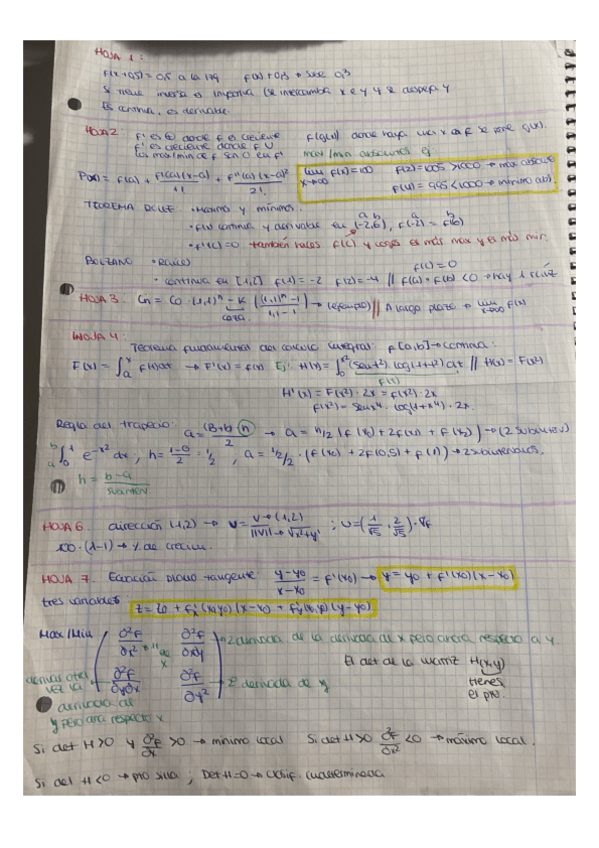 HOJA 1:
F(x+0,5) = 0,5 a la izq F(x) + 0,3 → sube 0,3
Si tiene inversa es impar (se intercambia x e y y se despeja y
Es continua, es derivable.
HOJA 2. F' es ⊕ donde F es creciente F(g(x)) donde haya una x en F se pone g(x).
F'' es creciente donde F U
Los max/min de F son 0 en F' max/min absolutos ej
P(x) = F(a) + F'(a)(x-a)/1! + F''(a)(x-a)²/2! lim x→∞ F(x) = 100 F(2) = 1005 > 1000 → max absoluto
F(4) = 995 < 1000 → mínimo abs
TEOREMA ROLLE: • Máximo y mínimos.
• F(x) continua y derivable en (-2,6), F(-2) = F(6)
• F'(c) = 0 también haces F(c) y coges es más max y es más min.
BOLZANO • Raíces F(c) = 0
• continua en [1,2] F(1) = -2 F(2) = -4 // F(a) · F(b) < 0 → hay 1 raíz
HOJA 3. Cn = C0 (1,1)ⁿ - K ((1,1)ⁿ - 1 / 1,1 - 1) → (ejemplo) // A largo plazo → lim x→∞ F(x)
HOJA 4:
Teorema fundamental del cálculo integral: F [a,b] → continua:
F(x) = ∫ₐˣ f(t)dt → F'(x) = f(x) Ej: H(x) = ∫₀^x² (sen t²) · log(1+t²) dt // H(x) = F(x²)
F(t)
H'(x) = F(x²) · 2x = F(x²) · 2x
F(x²) = sen x⁴ · log(1+x⁴) · 2x.
Regla del trapecio: a = (B+b) h / 2 → a = h/2 (F(x0) + 2F(x1) + F(x2)) → (2 subinterv)
∫₀¹ e^-x² dx; h = 1-0/2 = 1/2, a = 1/2/2 · (F(x0) + 2F(0,5) + F(1)) → 2 subintervalos.
h = b-a / subinterv.
HOJA 6. dirección (1,2) → u = v→(1,2) / ||v|| → √x²+y² ; u = (1/√5 , 2/√5) · ∇F
100 · (λ-1) → % de crecim.
HOJA 7. Ecuación plano tangente: y-y0 / x-x0 = F'(x0) → y = y0 + F'(x0)(x-x0)
tres variables: z = z0 + F'x(x0,y0)(x-x0) + F'y(x0,y0)(y-y0)
Max/Min ∂²F/∂x² ∂²F/∂xy → 2 derivada de la derivada de x pero ahora respecto a y.
El det de la matriz H(x,y)
derivas otra vez la derivada de y pero ahora respecto x ∂²F/∂y∂x ∂²F/∂y² → 2 derivada de y
tienes el pto.
Si det H > 0 y ∂²F/∂x² > 0 → mínimo local Si det H > 0 ∂²F/∂x² < 0 → máximo local.
Si det H < 0 → pto silla ; Det H = 0 → Clasif. indeterminada